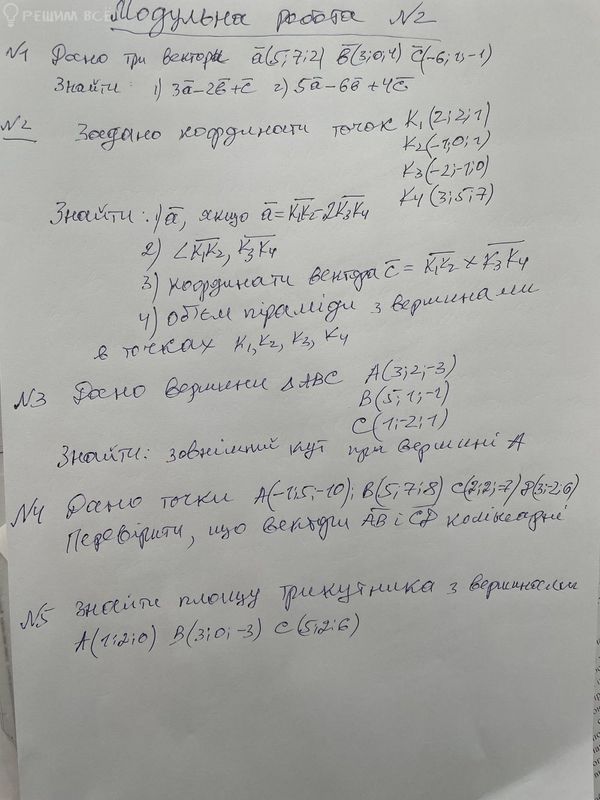 РЕШИМ ВСЁ
Модульна работа №2
№1 Дано три вектори ā(5;7;2) b̄(3;0;4) c̄(-6;1;-1)
Знайти: 1) 3ā-2b̄+c̄ 2) 5ā-6b̄+4c̄
№2 Задано координати точок K₁(2;2;1)
K₂(-1;0;1)
K₃(-2;-1;0)
K₄(3;5;7)
Знайти: 1) ā, якщо ā=K₁K₂-2K₃K₄
2) ∠K₁K₂, K₃K₄
3) координати вектора c̄ = K₁K₂ × K₃K₄
4) об'єм піраміди з вершинами
в точках K₁, K₂, K₃, K₄
№3 Дано вершини △ABC A(3;2;-3)
B(5;1;-1)
C(1;-2;1)
Знайти: зовнішний кут при вершині A
№4 Дано точки A(-1;5;-10); B(5;7;8) C(2;2;-7) D(3;-2;6)
Перевірити, що вектори AB і CD колінеарні
№5 Знайти площу трикутника з вершинами
A(1;2;0) B(3;0;-3) C(5;2;6)